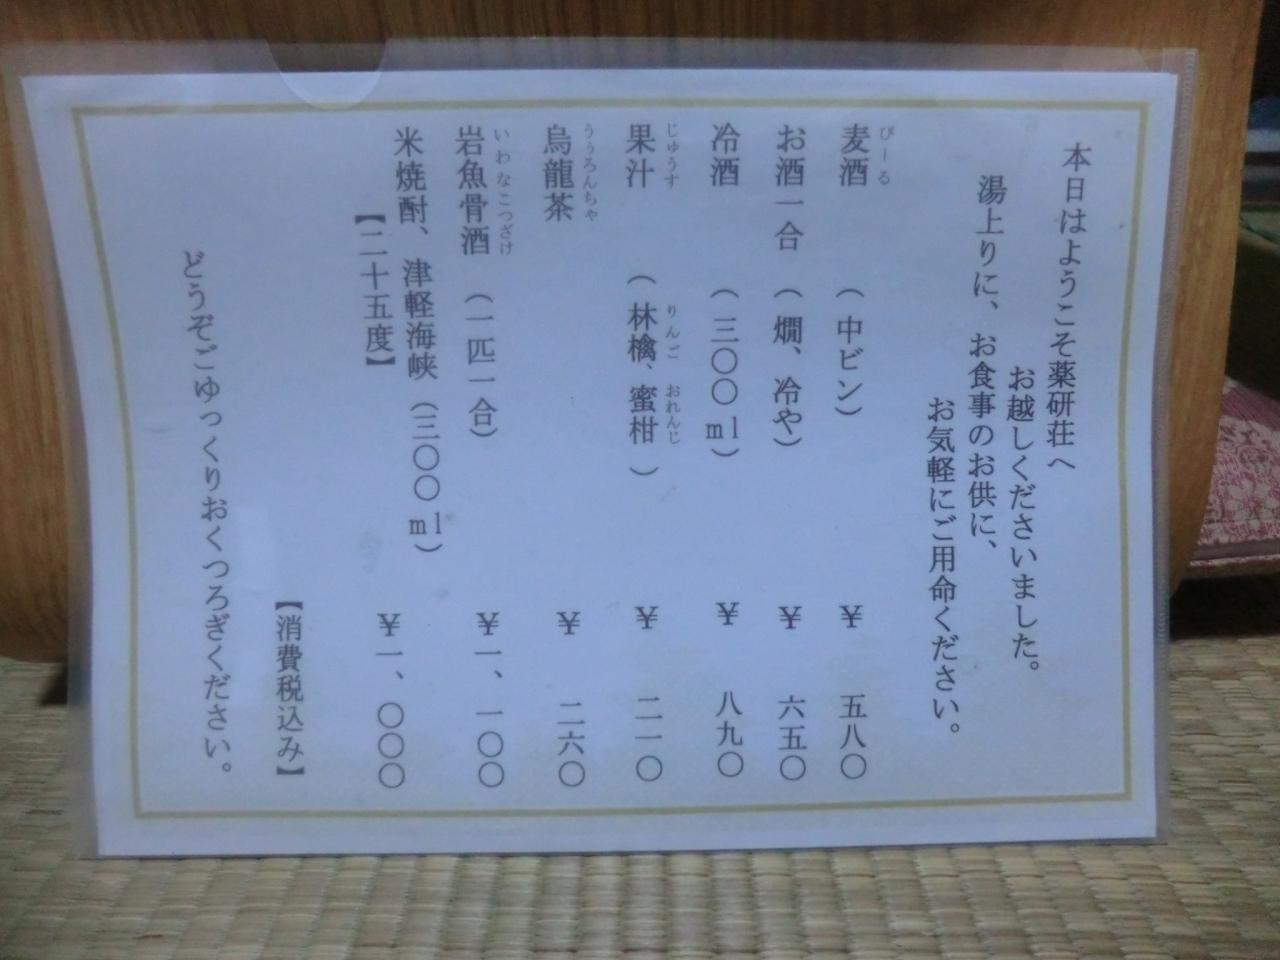 本日はようこそ薬研荘へ
お越しくださいました。
湯上りに、お食事のお供に、
お気軽にご用命ください。
麦酒 (中ビン) ¥ 五八〇
びーる
お酒一合 (燗、冷や) ¥ 六五〇
冷酒 (三〇〇ml) ¥ 八九〇
果汁 (林檎、蜜柑) ¥ 二一〇
じゅうす りんご おれんじ
烏龍茶 ¥ 二六〇
うぅろんちゃ
岩魚骨酒 (一匹一合) ¥一、一〇〇
いわなこつざけ
米焼酎、津軽海峡 (三〇〇ml) ¥一、〇〇〇
【二十五度】
【消費税込み】
どうぞごゆっくりおくつろぎください。